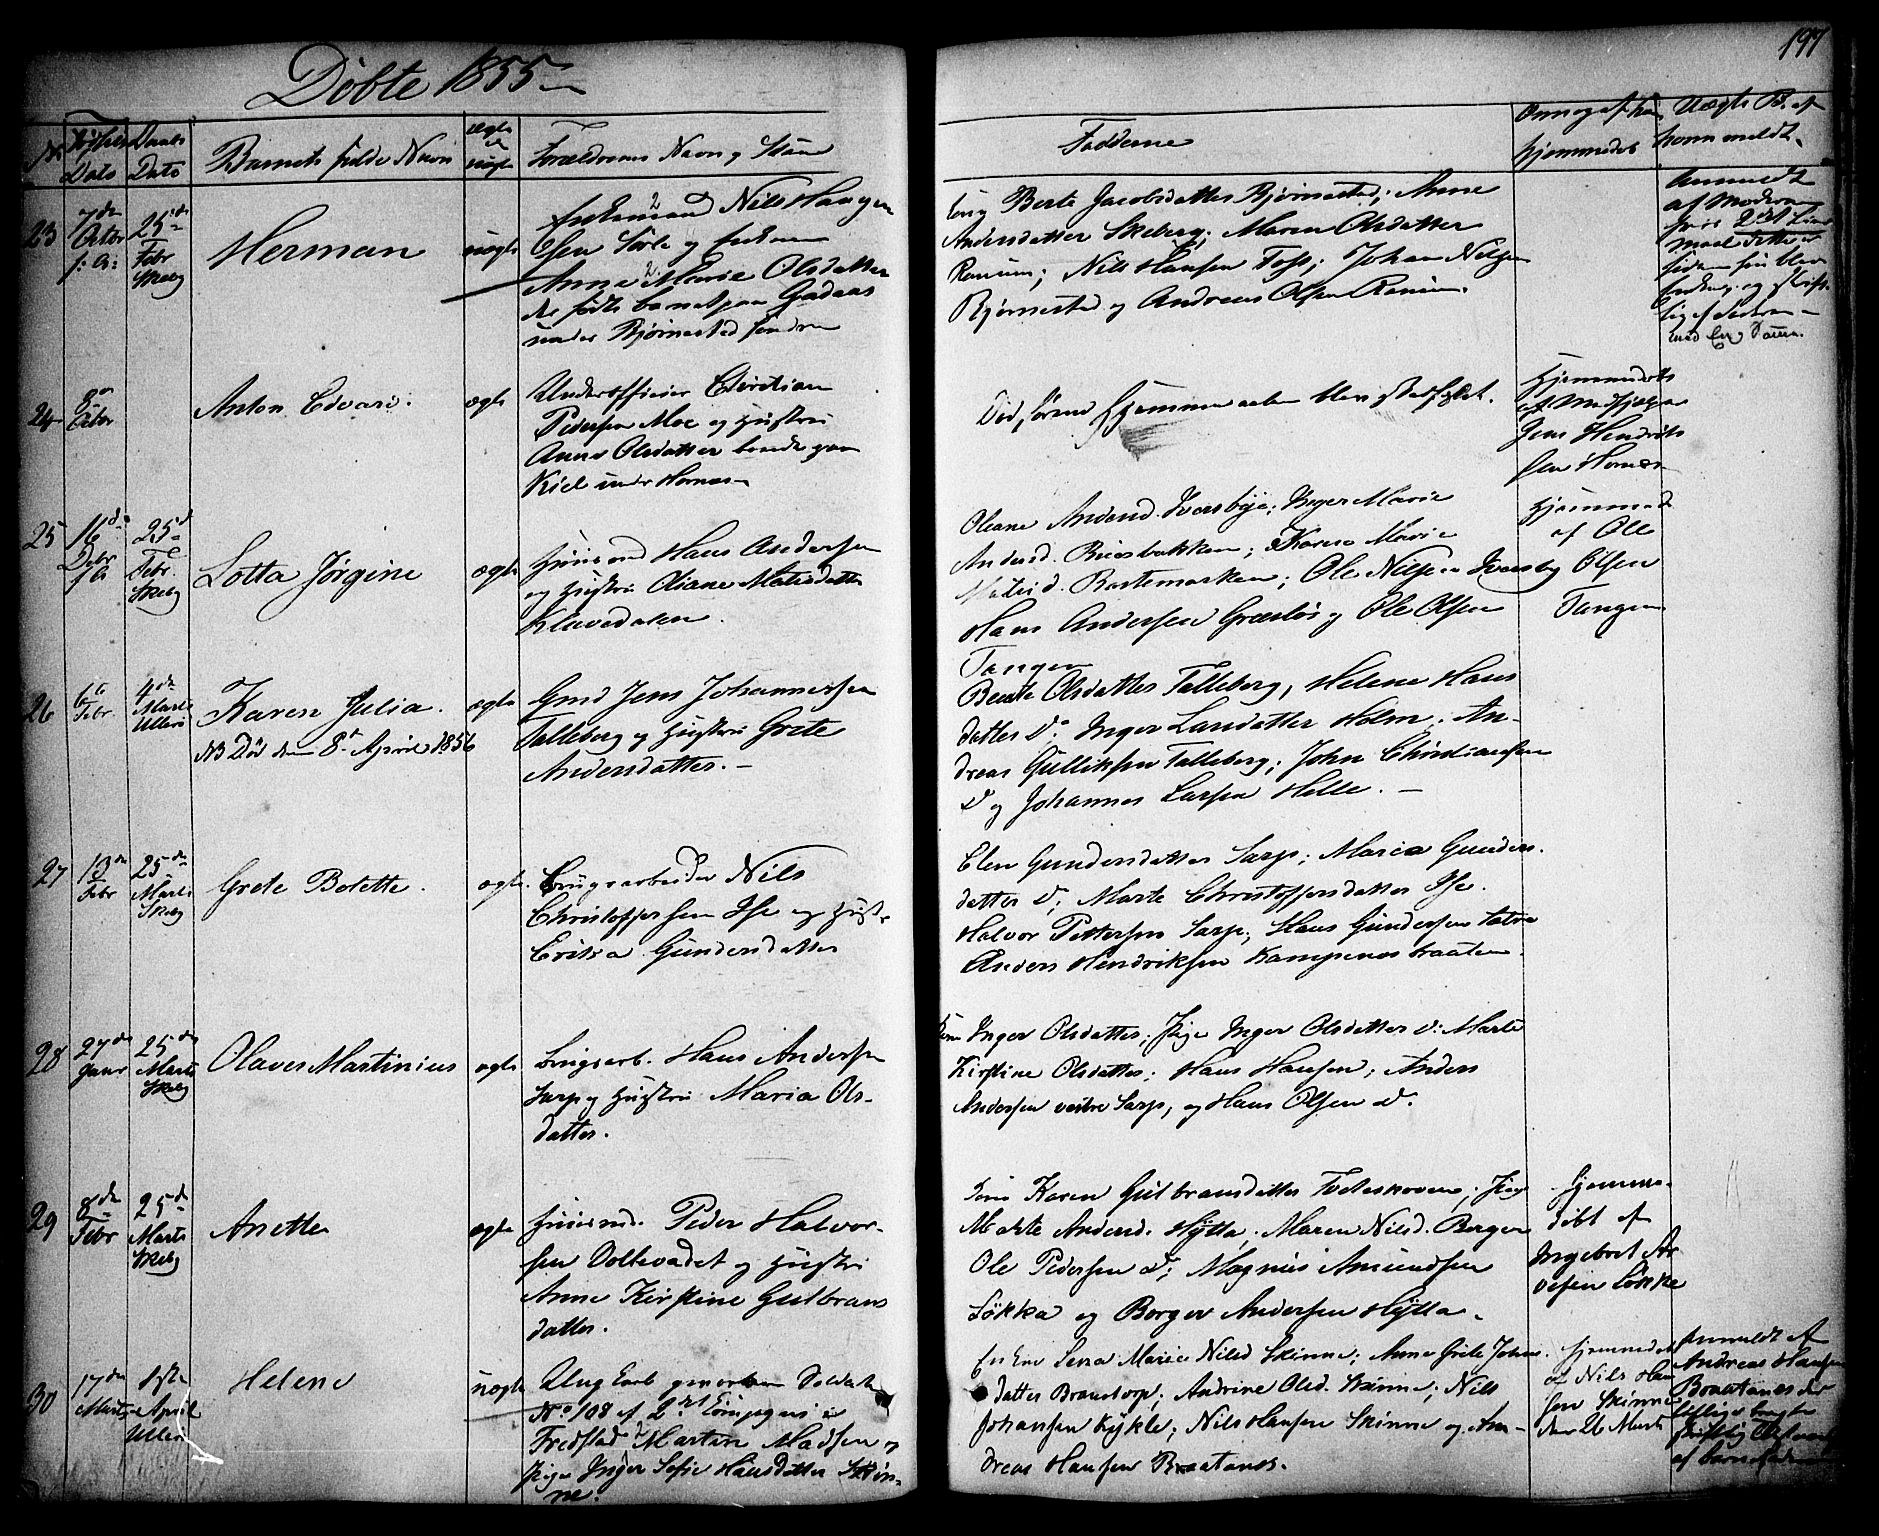 197
Døbte 1855
No
Fødsels
Dato
Daabs
Dato
Barnets fulde Navn
ægte
el
uægte
Forældrenes Navn og Stand
Fadderne
Om og af hvem
hjemmedøbt
Uægte B. af
hvem meldt.
23
7de
Octbr
25de
Febr
Skeby
Herman
uægte
Nils Hansen
og
Anne Marie Olsdatter
der fødte barnet paa
under Bjørnestad søndre
Berte Jacobsdatter Bjørnestad; Anne
Andersdatter Skeberg; Maren Olsdatter
Ranum; Nils Hansen Foss; Johan Nilsen
Bjørnestad og Andreas Olsen Ranum.
Anmeldt
af Moderen
24
8de
Octbr
Anton Edvard.
ægte
Underofficier Christian
Pedersen Moe og Hustru
Anne Olsdatter boende paa
Kiil under Hornes
Død, førend Hjemmedaaben blev stadfæstet.
Hjemmedøbt
af Medhjælper
Jens Hendrik
sen Hornes
25
16de
Debr
25de
Febr.
Skeby
Lotta Jørgine
ægte
Huusmd Hans Andersen
og Hustru Oliane Matisdatter
Klavedalen.
Oliane Andersd. Iversbye; Inger Marie
Andersd. Riisbakken; Karen Marie
Matisd. Rostemarken; Ole Nilsen Iversby
Hans Andersen Græslös og Ole Olsen
Tangen
Hjemmed
af Ole
Olsen
Tangen
26
6te
Febr.
4de
Marts
Ullerø
Karen Julia.
NB Død den 8de April 1856
ægte
Gmd Jens Johannessen
Talleberg og Hustru Grete
Andersdatter.
Bente Olsdatter Talleberg, Helene Hans
datter do; Inger Larsdatter Holm; An-
dreas Gulliksen Talleberg; John Christiansen
do og Johannes Larsen Helle.
27
13de
Febr
25de
Marts
Skeby
Grete Bolette.
ægte.
Brugsarbeider Nils
Christoffersen Ise og Hustr
Erika Gundersdatter
Elen Gundersdatter Sarp; Maria Gunders
datter do; Marte Christoffersdatter Ise.
Halvor Pettersen Sarp; Hans Gundersen
Anders Hendriksen Kampenesbraaten.
28
27de
Janr
25de
Marts
Skeby
Olaves Martinius
ægte
Brugsarb. Hans Andersen
Sarp og Hustru Maria Ols-
datter.
Kone Inger Olsdatter; Pige Inger Olsdatter do; Marte
Kirstine Olsdatter; Hans Hansen; Anders
Andersen vestre Sarp, og Hans Olsen do.
29
8de
Febr
25de
Marts
Skeby
Anette
ægte
Huusmd. Peder Halvor-
sen Dollevadet og Hustru
Anne Kirstine Gulbrans
datter.
Kone Karen Gulbransdatter; Pige
Marte Andersd. Hÿtta; Maren Nilsd. Berger
Ole Pedersen do; Magnus Amundsen
Løkka og Borger Andersen Hÿtta.
Hjemme-
døbt af
Ingebret Ar
vesen Løkke
30
17de
Marts
April
Ullerø
Helene
uægte
Ung Karl Soldat
No 108 af 2det Compagni i
Fredstad, Martin Madsen og
Pige Inger Sofie Hansdatter Skin-
ne.
Lena Marie Nilsd Skinne; Anne Grete Johns
datter Brandtorp; Andrine Olsd. Skinne; Nils
Johansen Kykle; Nils Hansen Skinne og An-
dreas Hansen Braatanes.
Hjemmedøbt
af Nils Han
sen Skinne
Anmeldt af
Andreas Hansen
Braatanes